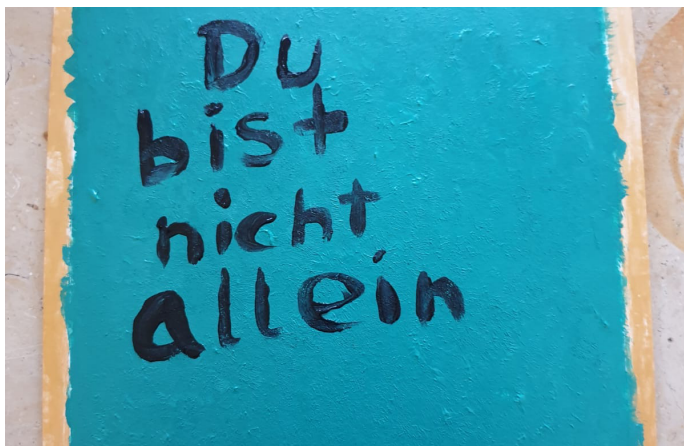 Du
bist
nicht
allein